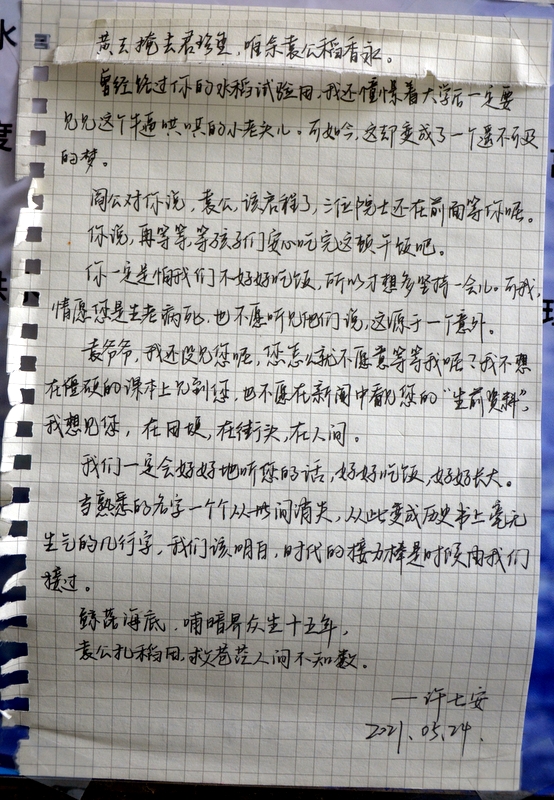 黄土掩去君珍重，唯余袁公稻香永。
曾经绕过你的水稻试验田，我还憧憬着大学后一定要
见见这个牛逼哄哄的小老头儿。而如今，这却变成了一个遥不可及
的梦。
阎公对你说，袁公，该启程了，三位院士还在前面等你呢。
你说，再等等，等孩子们安心吃完这顿午饭吧。
你一定是怕我们不好好吃饭，所以才想多坚持一会儿。而我，
情愿您是生老病死，也不愿听见他们说，这源于一个意外。
袁爷爷，我还没见您呢，您怎么就不愿意等等我呢？我不想
在僵硬的课本上见到您，也不愿在新闻中看见您的“生前资料”，
我想见您，在田埂，在街头，在人间。
我们一定会好好地听您的话，好好吃饭，好好长大。
当熟悉的名字一个个从世间消失，从此变成历史书上毫无
生气的几行字，我们该明白，时代的接力棒是时候由我们
接过。
鲸落海底，哺暗界众生十五年，
袁公扎稻田，救苍茫人间不知数。
—许七安
2021.05.24.
水
度